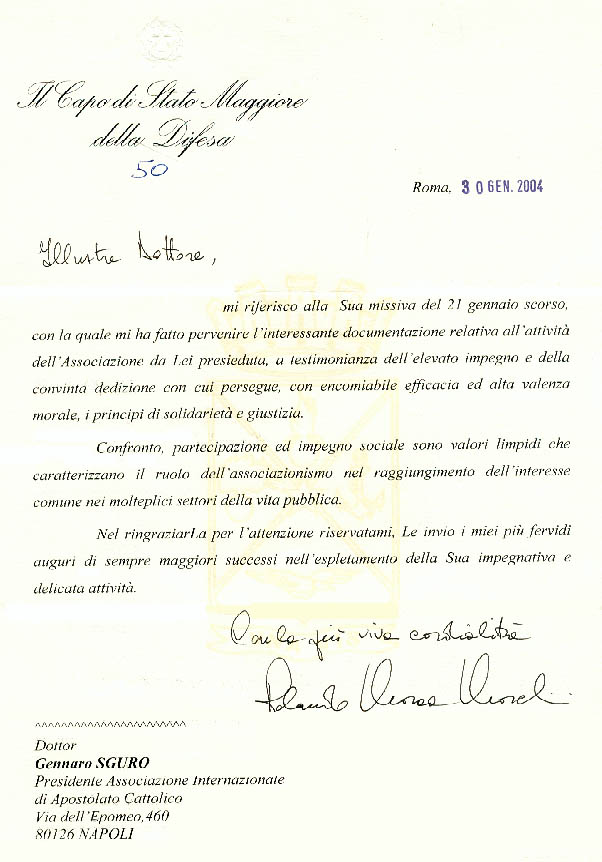 Il Capo di Stato Maggiore
della Difesa
50
Roma, 30 GEN. 2004
Illustre Dottore,
mi riferisco alla Sua missiva del 21 gennaio scorso,
con la quale mi ha fatto pervenire l'interessante documentazione relativa all'attività
dell'Associazione da Lei presieduta, a testimonianza dell'elevato impegno e della
convinta dedizione con cui persegue, con encomiabile efficacia ed alta valenza
morale, i principi di solidarietà e giustizia.
Confronto, partecipazione ed impegno sociale sono valori limpidi che
caratterizzano il ruolo dell'associazionismo nel raggiungimento dell'interesse
comune nei molteplici settori della vita pubblica.
Nel ringraziarLa per l'attenzione riservatami, Le invio i miei più fervidi
auguri di sempre maggiori successi nell'espletamento della Sua impegnativa e
delicata attività.
Con la più viva cordialità
^^^^^^^^^^^^^^^^^^^^^^^
Dottor
Gennaro SGURO
Presidente Associazione Internazionale
di Apostolato Cattolico
Via dell'Epomeo,460
80126 NAPOLI